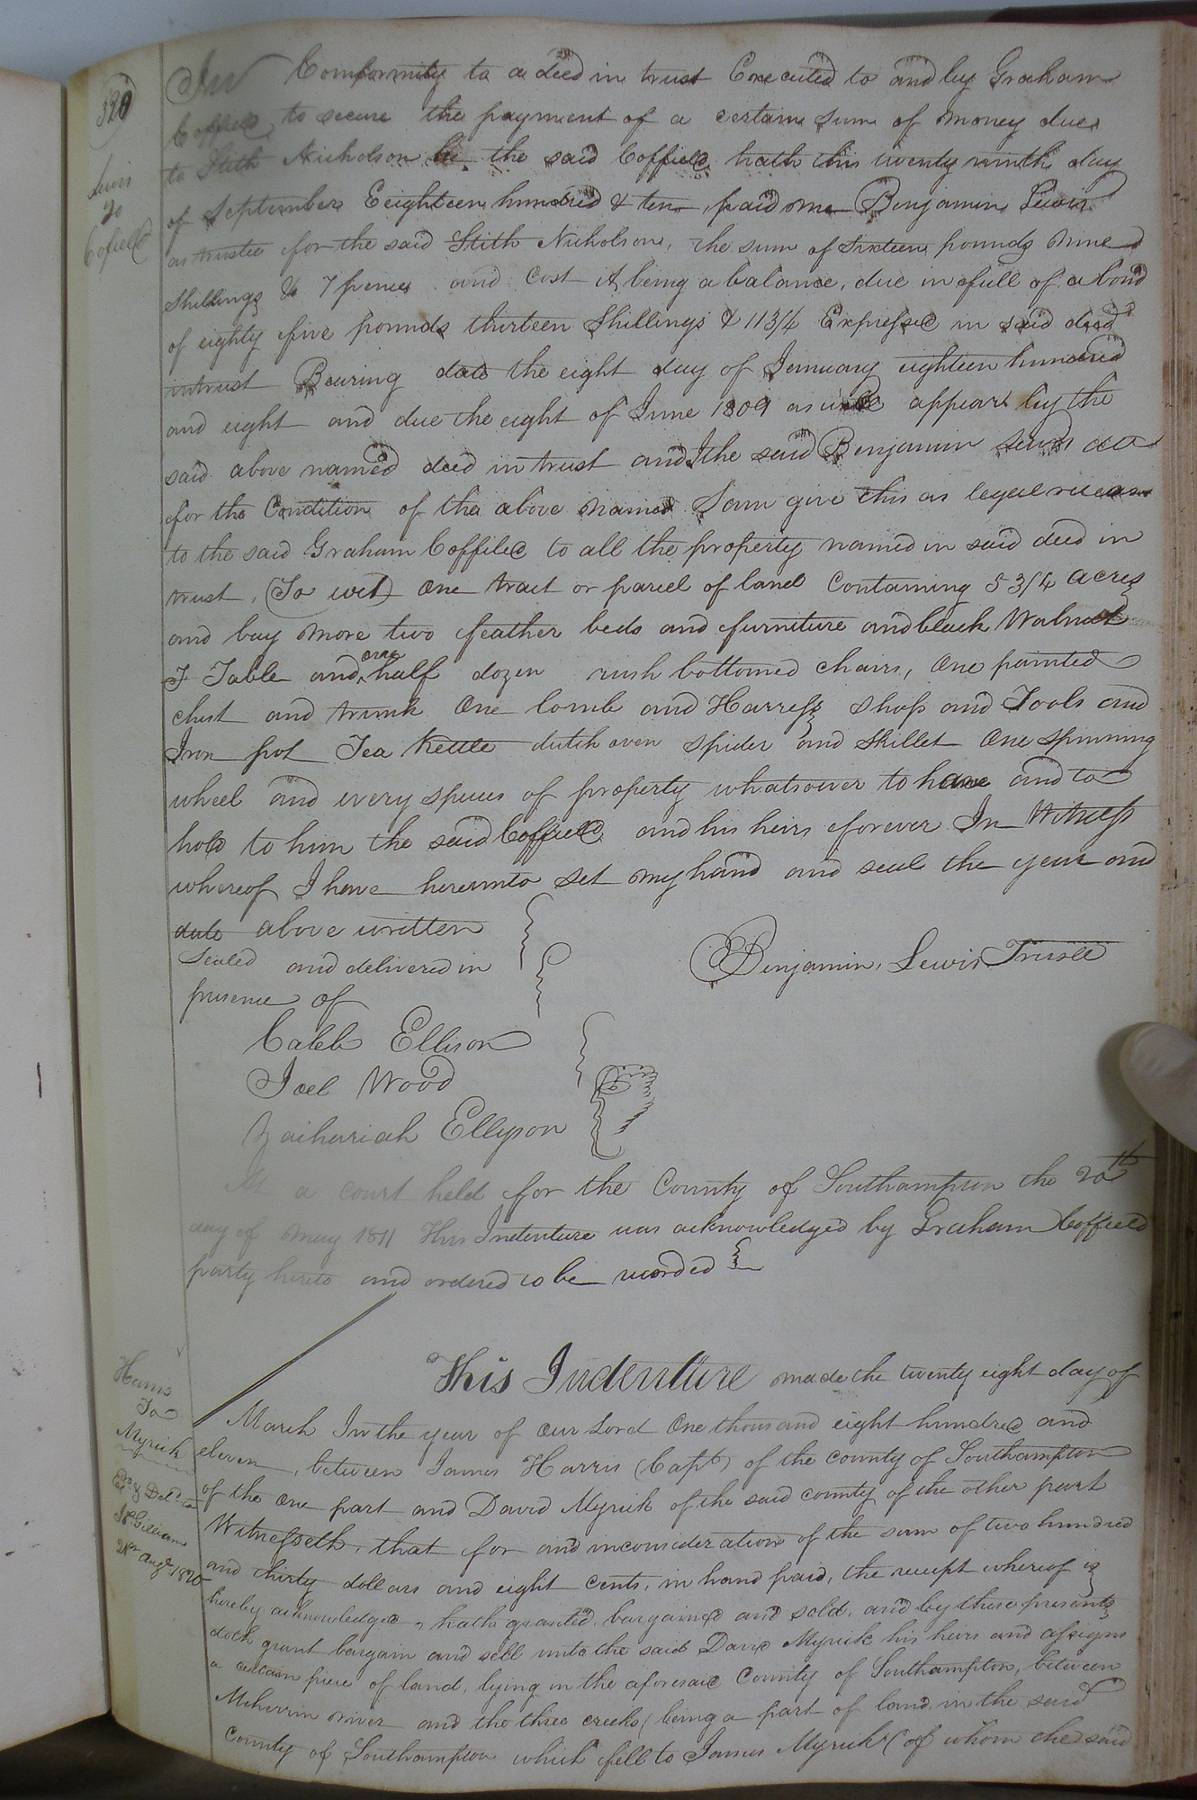 320
Lewis
To
Coffield
In Conformity to a deed in trust Executed to and by Graham
Coffield to secure the payment of a certain sum of money due
to Stith Nicholson he the said Coffield hath this twenty ninth day
of September Eeighteen hundred & ten, paid me Benjamin Lewis
as trustee for the said Stith Nicholson, the sum of Sixteen pounds Nine
Shillings & 7 pence and Cost it being a balance, due in full of a bond
of eighty five pounds thirteen Shillings & 11 3/4 Expressed in said deed
intrust Bearing date the eight day of January eighteen hundred
and eight and due the eight of June 1809 as will appear by the
said above named deed in trust and I the said Benjamin Lewis do
for the Condition of the above named Sum give this as legal release
to the said Graham Coffiled to all the property named in said deed in
trust, (To wit) One tract or parcel of land Containing 53/4 acres
and bay mare two feather beds and furniture and black Walnut
T Table and one half dozen rush bottomed chairs, One painted
chest and trunk One Comb and Harress Shop and Tools and
Iron pot Tea Kettle dutch oven Spider and Skillet One spinning
wheel and every spices of property whatsoever to have and to
hold to him the said Coffield and his heirs forever In Witness
whereof I have hereunto set my hand and seal the year and
date above written
Sealed and delivered in
presence of
Benjamin Lewis Trustee
Caleb Ellison
Joel Wood
Zachariah Ellyson
At a court held for the County of Southampton the 20th
day of May 1811 This Indenture was acknowledged by Graham Coffield
party hereto and ordered to be recorded
Harris
To
Myrick
Ex.d & Del.d to
Gilliam
28th Augt 1820
This Indenture made the twenty eight day of
March In the year of our Lord One thousand eight hundred and
eleven, between James Harris (Capt) of the county of Southampton
of the One part and David Myrick of the said county of the other part
Witnesseth, that for and inconsideration of the sum of two hundred
and thirty dollars and eight cents, in hand paid, the receipt whereof is
hereby acknowledged, hath granted, bargained and sold, and by these presents
doth grant bargain and sell unto the said David Myrick his heirs and assigns
a certain piece of land, lying in the aforesaid County of Southampton, between
Meherrin river and the three creeks (being a part of land in the said
County of Southampton which fell to James Myrick (of whom the said